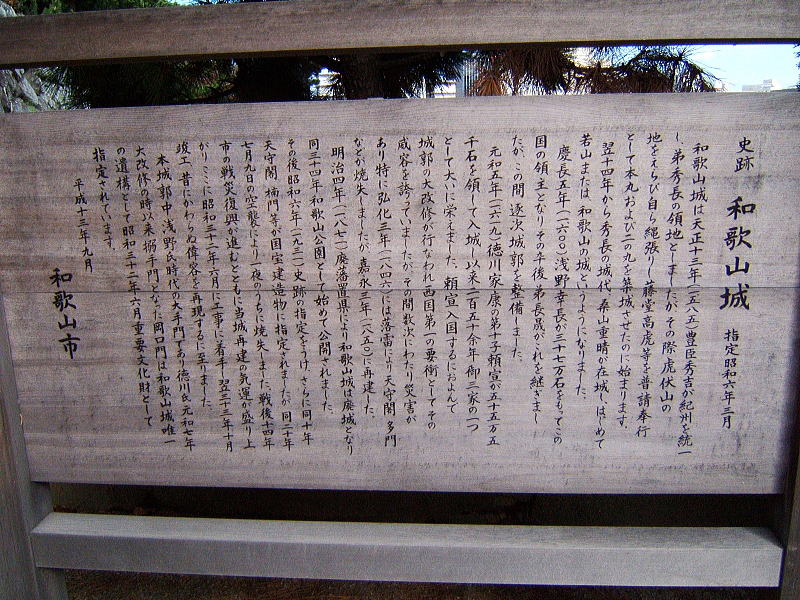 史跡 和歌山城 指定昭和六年三月
和歌山城は天正十三年(一五八五)豊臣秀吉が紀州を統一
し、弟秀長の領地としましたが、その際虎伏山の
地をえらび自ら縄張りし、藤堂高虎等を普請奉行
として本丸および二の丸を築城させたのに始まります。
翌十四年から秀長の城代、桑山重晴が在城し、はじめて
若山または、和歌山の城というようになりました。
慶長五年(一六〇〇)浅野幸長が三十七万石をもってこの
国の領主となり、その卒後、弟長晟がこれを継ぎまし
たが、この間、逐次、城郭を整備しました。
元和五年(一六一九)徳川家康の第十子頼宣が五十五万五
千石を領して入城し、以来二百五十余年、御三家の一つ
として大いに栄えました。頼宣入国するにおよんで
城郭の大改修が行なわれ西国第一の要衝としてその
威容を誇っていましたが、その間数次にわたり災害が
あり特に弘化三年(一八四六)には落雷により天守閣、多門
などが焼失しましたが嘉永三年(一八五〇)に再建した。
明治四年(一八七一)廃藩置県により和歌山城は廃城となり
同三十四年和歌山公園として始めて公開されました。
その後昭和六年(一九三一)史跡の指定をうけ、さらに同十年
天守閣、楠門等が国宝建造物に指定されましたが、同二十年
七月九日の空襲により一夜のうちに焼失しました。戦後十四年
市の戦災復興が進むとともに当城再建の気運が盛り上
がり、ここに昭和三十二年六月に工事に着手、翌三十三年十月
竣工、昔にかわらぬ偉容を再現するに至りました。
本城郭中、浅野氏時代の大手門であり徳川氏元和七年
大改修の時以来搦手門となった岡口門は和歌山城唯一
の遺構として昭和三十二年六月重要文化財として
指定されています。
平成十三年九月
和歌山市